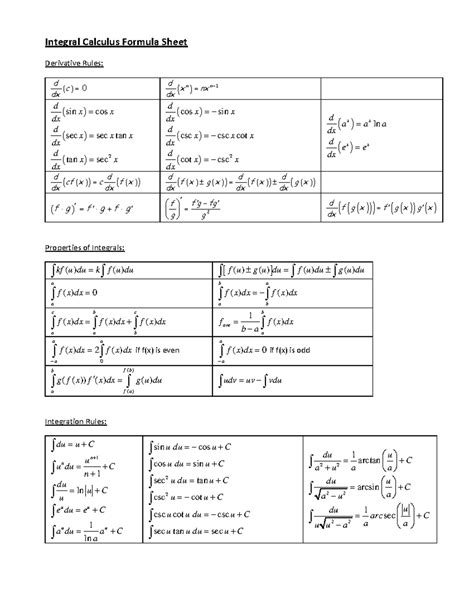 Integral Calculus Formula Sheet
Derivative Rules:
d/dx (c) = 0
d/dx (xⁿ) = nxⁿ⁻¹
d/dx (sin x) = cos x
d/dx (cos x) = − sin x
d/dx (sec x) = sec x tan x
d/dx (csc x) = − csc x cot x
d/dx (tan x) = sec² x
d/dx (cot x) = − csc² x
d/dx (aˣ) = aˣ ln a
d/dx (eˣ) = eˣ
d/dx (cf(x)) = c d/dx (f(x))
d/dx (f(x) ± g(x)) = d/dx (f(x)) ± d/dx (g(x))
(f · g)′ = f′ · g + f · g′
(f/g)′ = f′g − fg′ / g²
d/dx (f(g(x))) = f′(g(x)) g′(x)
Properties of Integrals:
∫kf(u)du = k∫f(u)du
∫[f(u) ± g(u)]du = ∫f(u)du ± ∫g(u)du
∫ₐᵃ f(x)dx = 0
∫ₐᵇ f(x)dx = −∫ᵇₐ f(x)dx
∫ₐᶜ f(x)dx = ∫ₐᵇ f(x)dx + ∫ᵇᶜ f(x)dx
f ave = 1/(b − a) ∫ₐᵇ f(x)dx
∫₋ₐᵃ f(x)dx = 2∫₀ᵃ f(x)dx if f(x) is even
∫₋ₐᵃ f(x)dx = 0 if f(x) is odd
∫ₐᵇ g(f(x)) f′(x)dx = ∫ f(a) f(b) g(u)du
∫udv = uv − ∫vdu
Integration Rules:
∫du = u + C
∫uⁿdu = uⁿ⁺¹/(n + 1) + C
∫du/u = ln|u| + C
∫eᵘdu = eᵘ + C
∫aᵘdu = 1/ln a aᵘ + C
∫sin u du = − cos u + C
∫cos u du = sin u + C
∫sec² u du = tan u + C
∫csc² u = − cot u + C
∫csc u cot u du = − csc u + C
∫sec u tan u du = sec u + C
∫du/(a² + u²) = 1/a arctan(u/a) + C
∫du/√(a² − u²) = arcsin(u/a) + C
∫du/(u√(u² − a²)) = 1/a arc sec(|u|/a) + C